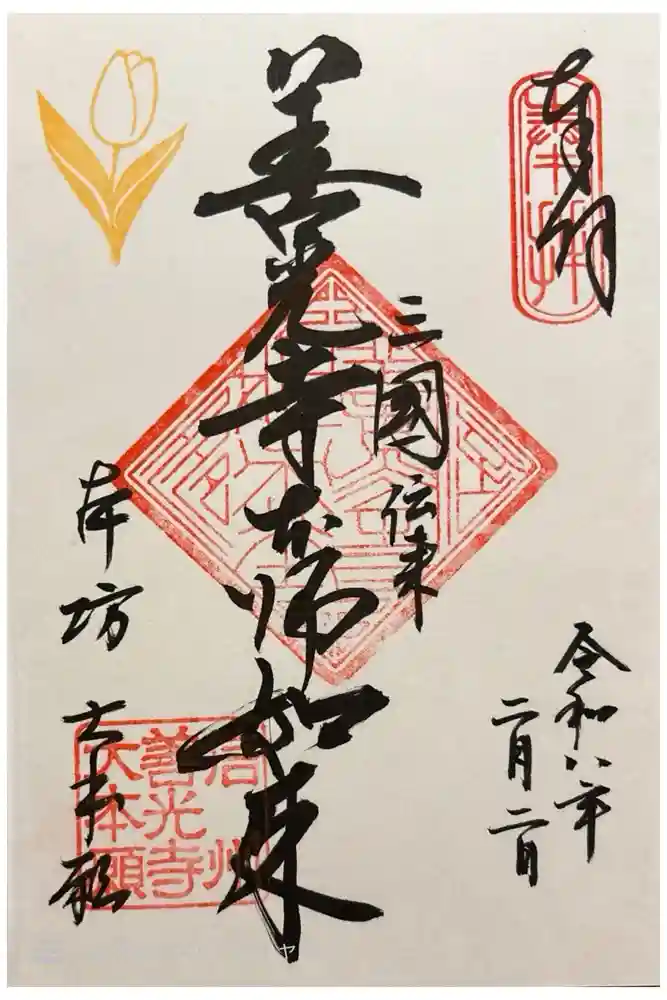 奉拝
奉拝
令和八年
二月二日
三國伝来
善光寺本師如来
本坊 大本願
信州
善光寺
大本願
ヤ